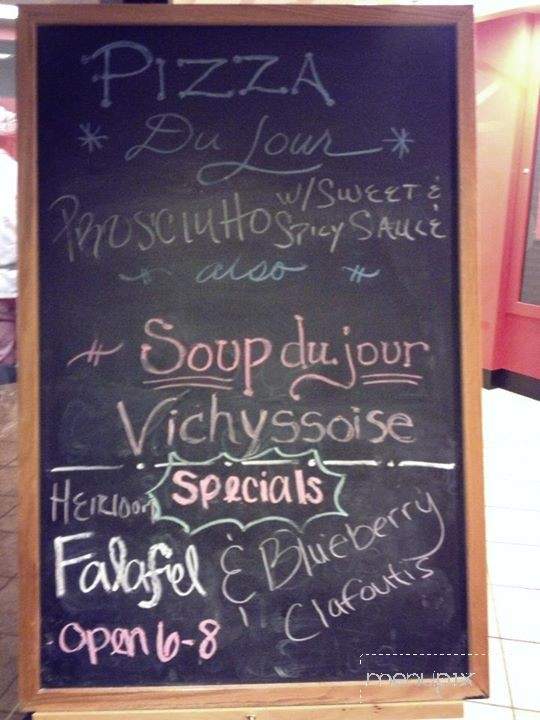 PIZZA
* Du Jour *
PROSCIUTTO W/ SWEET &
SPICY SAUCE
also
Soup du jour
Vichyssoise
Specials
HEIRLOOM
Falafel & Blueberry
Clafoutis
open 6-8
menupix